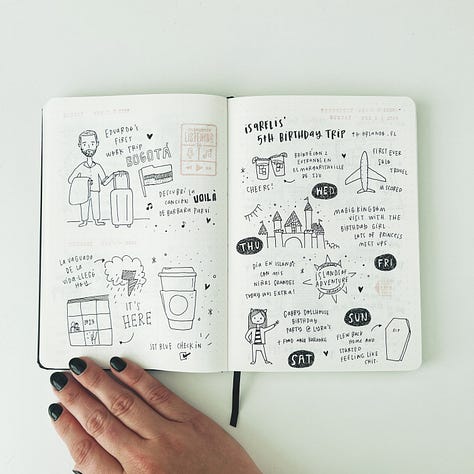 EDUARDO'S
FIRST
WORK TRIP
BOGOTÁ
LISTENING
DESCUBRÍ LA
CANCIÓN VOILÀ
DE BARBARA PRAVI.
LA VAGUADA
DE LA
VIDA LLEGÓ
HOY.
IT'S
HERE
JST BLUE CHECK IN
ISABELIS'
5TH BIRTHDAY TRIP
TO ORLANDO, FL
CHEERS!
WED
FIRST EVER
SOLO
TRAVEL
MAGIC KINGDOM
VISIT WITH THE
BIRTHDAY GIRL
LOTS OF PRINCESS
MEET UPS.
THU
FRI
DÍA EN ISLANDS
CON MIS
NIÑAS GRANDES
TODAY WAS EXTRA!
ISLANDS OF
ADVENTURE
GABBY DOLLHOUSE
BIRTHDAY
PARTY @
SAT
SUN
FLEW BACK
HOME AND
STARTED
FEELING LIKE
SHIT.
RIP